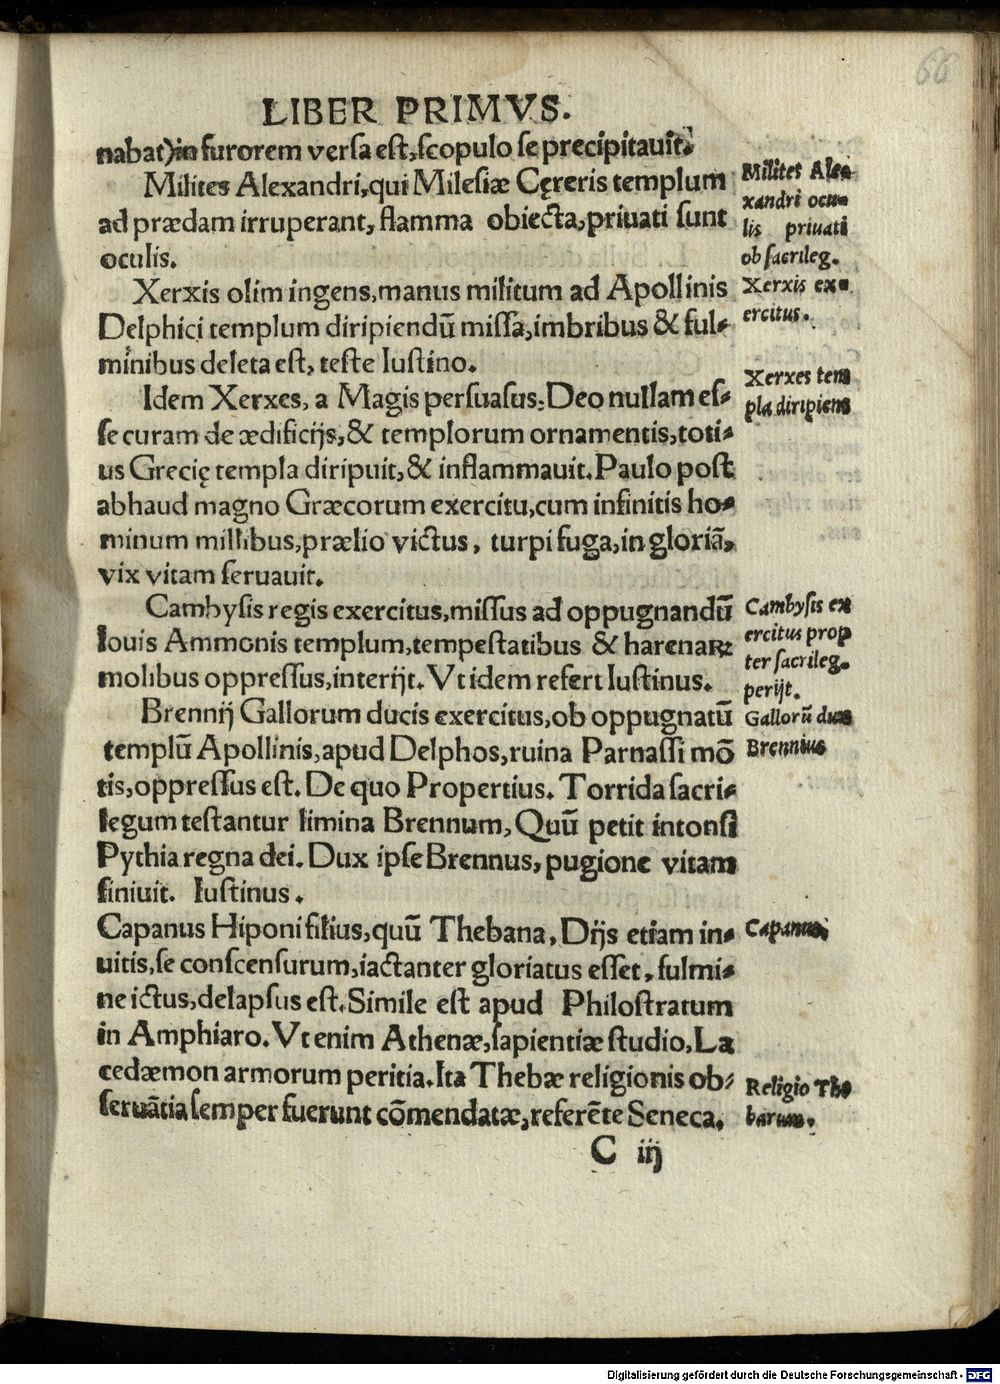 66
LIBER PRIMVS.
nabat) in furorem versa est, scopulo se precipitauit.
Milites Alexandri, qui Milesiæ Cęreris templum
ad prædam irruperant, flamma obiecta, priuati sunt
oculis.
Milites Alexandri oculis priuati ob sacrileg.
Xerxis olim ingens, manus militum ad Apollinis
Delphici templum diripiendū missa, imbribus & ful-
minibus deleta est, teste Iustino.
Xerxis ex-
ercitus.
Idem Xerxes, a Magis persuasus: Deo nullam es-
se curam de ædificijs, & templorum ornamentis, toti-
us Grecię templa diripuit, & inflammauit. Paulo post
abhaud magno Græcorum exercitu, cum infinitis ho-
minum millibus, prælio victus, turpi fuga, in gloriā,
vix vitam seruauit.
Xerxes tem
pla diripiens
Cambysis regis exercitus, missus ad oppugnandū
Iouis Ammonis templum, tempestatibus & harenaꝝ
molibus oppressus, interijt. Vt idem refert Iustinus.
Cambysis ex
ercitus prop
ter sacrileg.
perijt.
Brennij Gallorum ducis exercitus, ob oppugnatū
templū Apollinis, apud Delphos, ruina Parnassi mō
tis, oppressus est. De quo Propertius. Torrida sacri-
legum testantur limina Brennum, Quū petit intonsi
Pythia regna dei. Dux ipse Brennus, pugione vitam
finiuit. Iustinus.
Gallorū dux
Brennius
Capanus Hiponi filius, quū Thebana, Dijs etiam in-
uitis, se conscensurum, iactanter gloriatus esset, fulmi-
ne ictus, delapsus est. Simile est apud Philostratum
in Amphiaro. Vt enim Athenæ, sapientiæ studio, La
cedæmon armorum peritia. Ita Thebæ religionis ob-
seruātia semper fuerunt cōmendatæ, referēte Seneca.
Capanus
Religio The
barum.
C iij
Digitalisierung gefördert durch die Deutsche Forschungsgemeinschaft - DFG